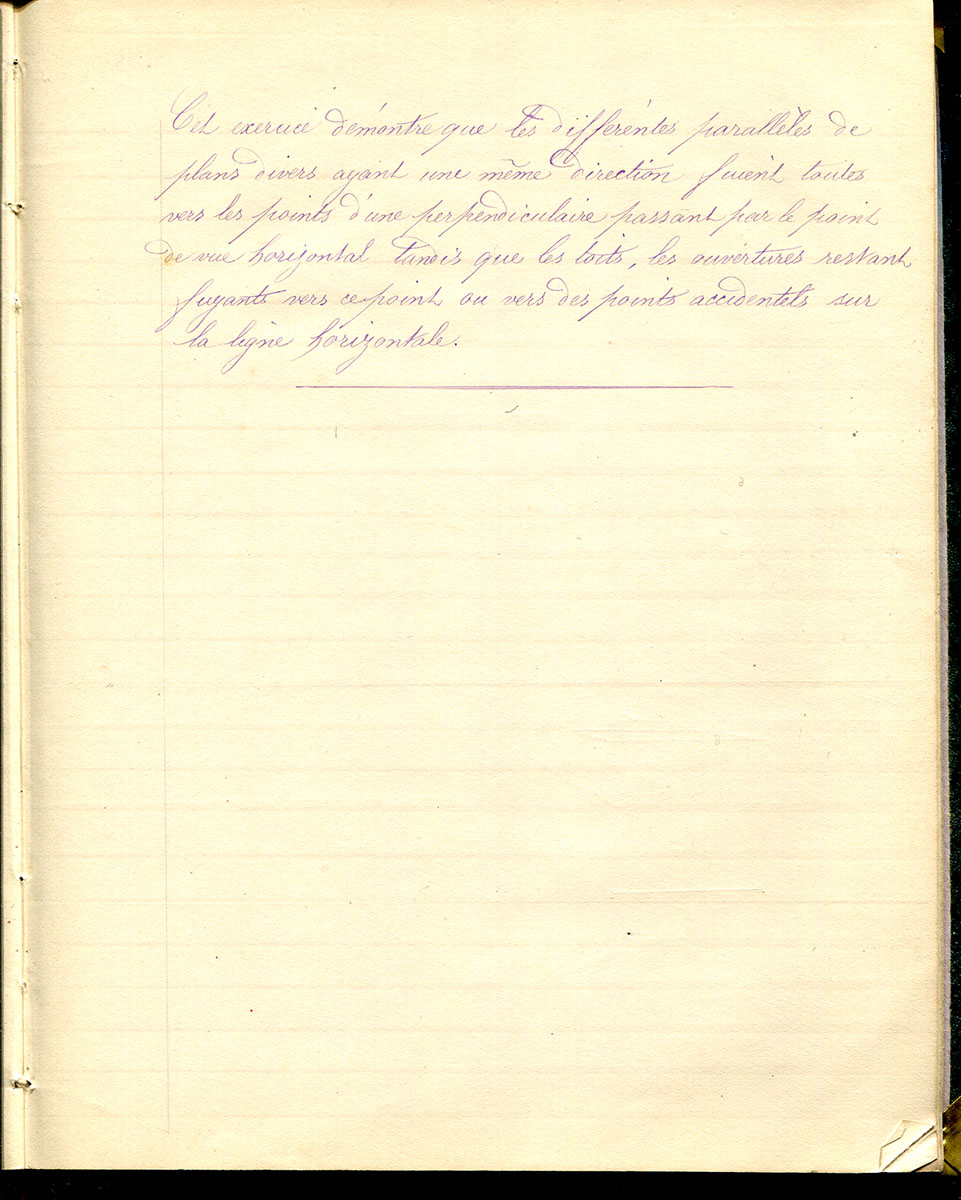 Cet exercice démontre que les différentes parallèles de
plans divers ayant une même direction fuient toutes
vers les points d'une perpendiculaire passant par le point
de vue horizontal tandis que les toits, les ouvertures restant
fuyants vers ce point ou vers des points accidentels sur
la ligne horizontale.